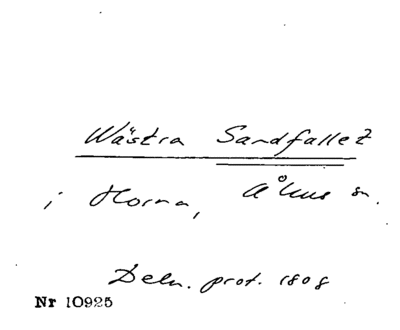 Wästra Sandfallet
i Horna, Åhus sn.
Deln. prot. 1808
Nr 10925